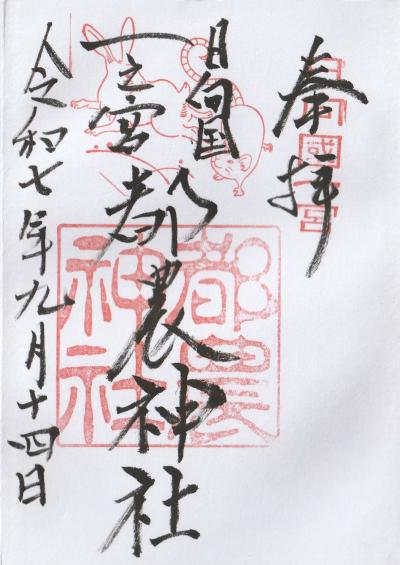 奉拝
日向國一宮
日向国
一之宮都農神社
都農
神社
令和七年九月十四日